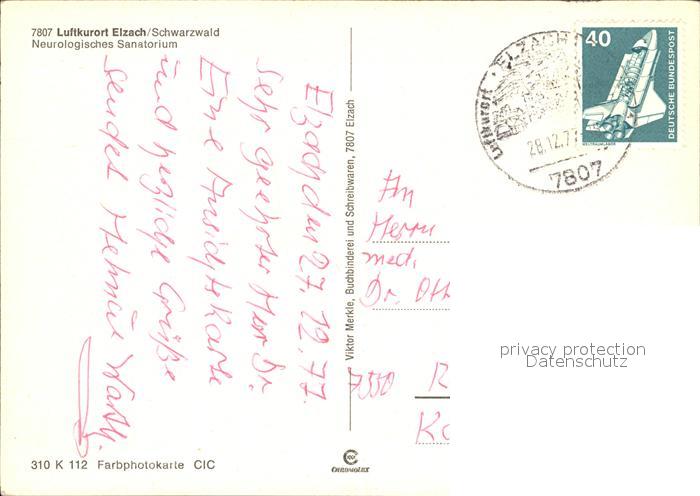 7807 Luftkurort Elzach/Schwarzwald
Neurologisches Sanatorium
Elzach den 27.12.77.
Sehr geehrter Herr Dr.
Eine Ansichtskarte
und herzliche Grüße
sendet Helmut
Viktor Merkle, Buchbinderei und Schreibwaren, 7807 Elzach
An
Herrn
med.
Dr. Oth
7550 R
Luftkurort · ELZACH
28.12.77
7807
40
DEUTSCHE BUNDESPOST
WELTRAUMLABOR
privacy protection
Datenschutz
310 K 112 Farbphotokarte CIC
CHROMOLUX